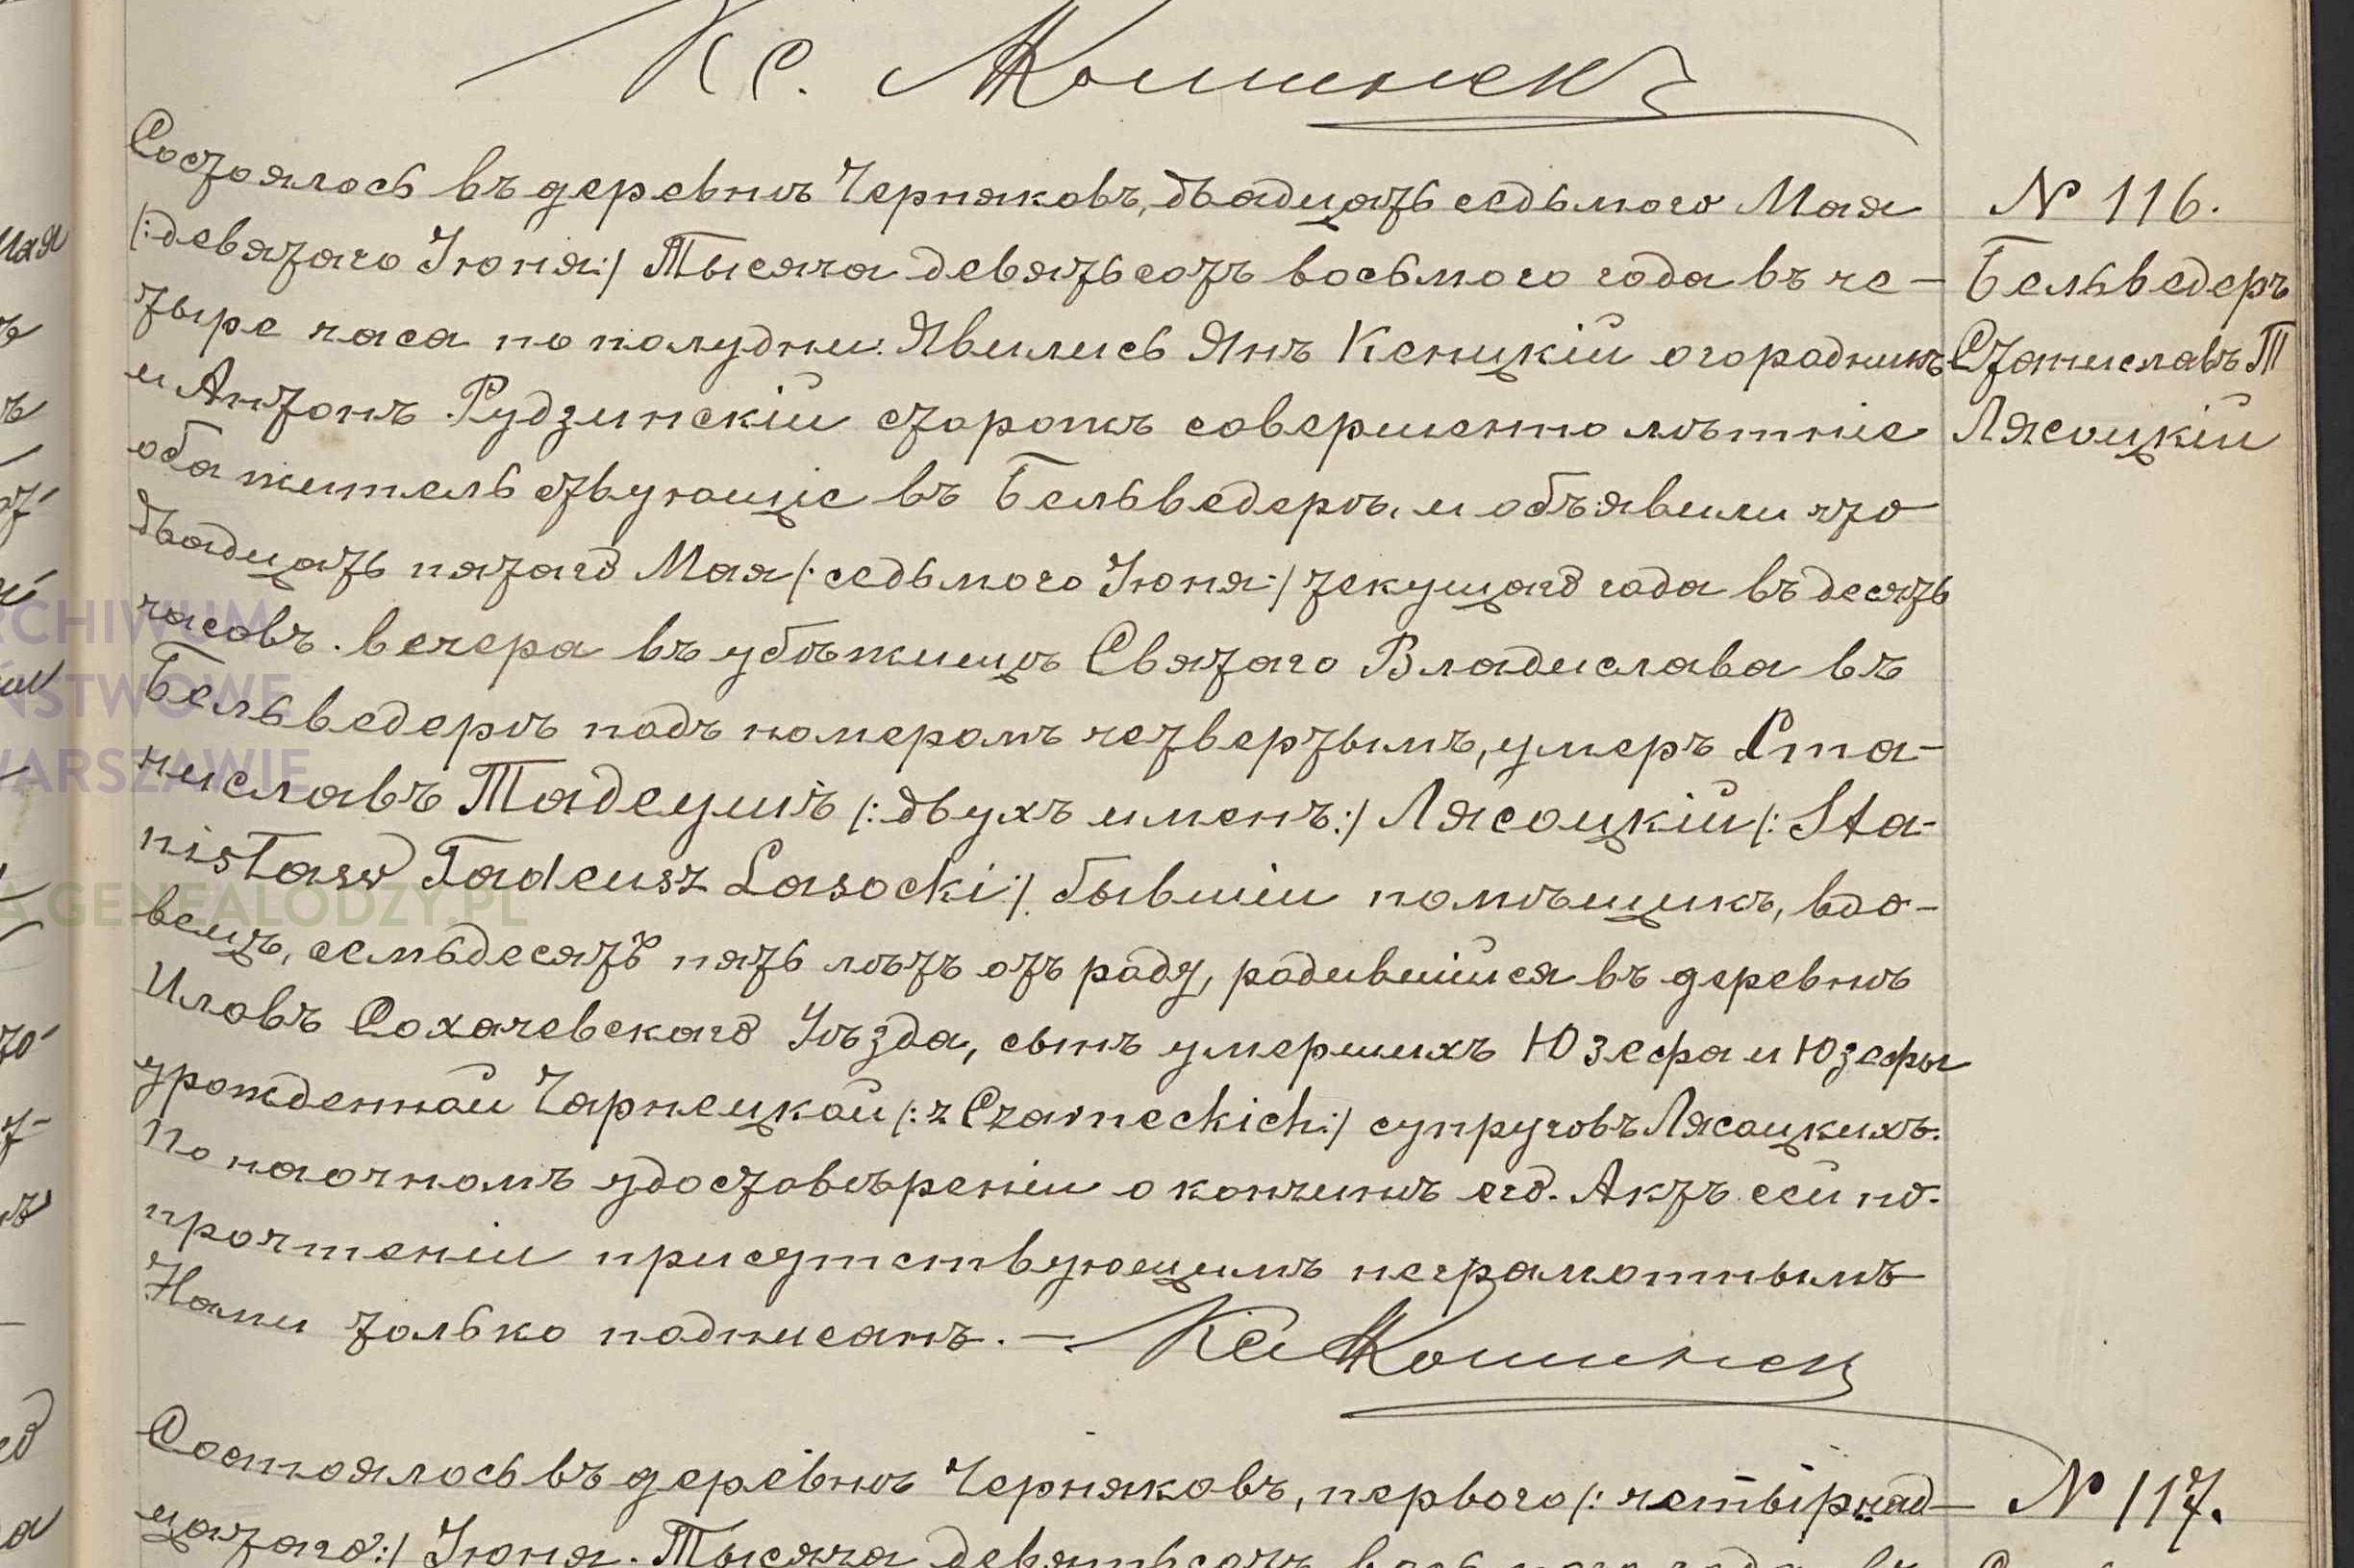 Кс. Кошинекъ
Состоялось въ деревнѣ Черняковъ, двадцать седьмого Мая
/:девятаго Іюня:/ Тысяча девятьсотъ восьмого года въ че-
тыре часа по полудни. Явились Янъ Кеницкій огородникъ
и Антонъ Рудзинскій сторожъ совершенно лѣтніе
оба жительствующіе въ Бельведерѣ, и объявили что
двадцать пятаго Мая /:седьмого Іюня:/ текущаго года въ десять
часовъ вечера въ убѣжищѣ Святаго Владислава въ
Бельведерѣ подъ номеромъ четвертымъ, умеръ Ста-
ниславъ Тадеушъ /:двухъ именъ:/ Лясоцкій /:Sta-
nisław Tadeusz Lasocki:/ бывшій помѣщикъ, вдо-
вецъ, семьдесятъ пять лѣтъ отъ роду, родившійся въ деревнѣ
Иловъ Сохачевскаго Уѣзда, сынъ умершихъ Юзефа и Юзефы
урожденной Чарнецкой /:z Czarneckich:/ супруговъ Лясоцкихъ.
По наочномъ удостовѣреніи о кончинѣ его. Актъ сей по
прочтеніи присутствующимъ неграмотнымъ
Нами только подписанъ. — Кс Кошинекъ
№ 116.
Бельведеръ
Станиславъ Т
Лясоцкій
Состоялось въ деревнѣ Черняковъ, первого /:четырнад-
цатаго:/ Іюня. Тысяча девятьсотъ восьмого года въ
№ 117.
Мая
ARCHIWUM
PAŃSTWOWE
WARSZAWIE
GENEALODZY.PL